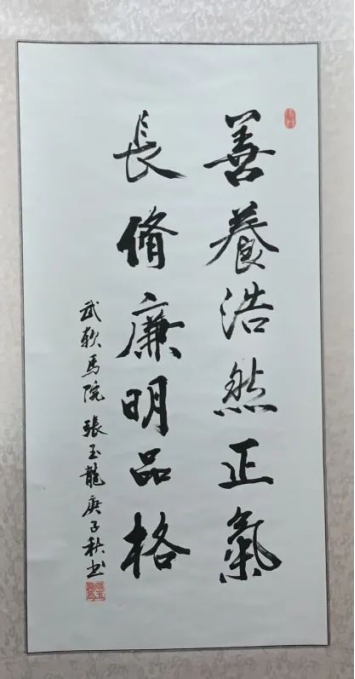 善養浩然正氣
長脩廉明品格
武軟馬院張玉龍庚子秋书